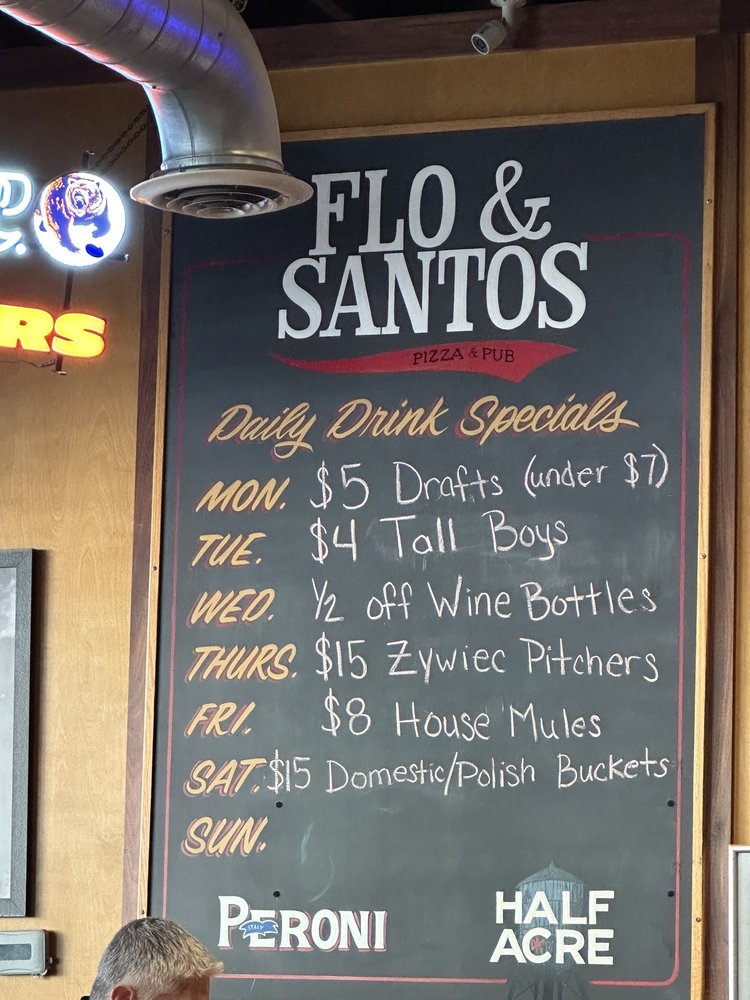 RS
FLO &
SANTOS
PIZZA & PUB
Daily Drink Specials
MON. $5 Drafts (under $7)
TUE. $4 Tall Boys
WED. 1/2 off Wine Bottles
THURS. $15 Zywiec Pitchers
FRI. $8 House Mules
SAT. $15 Domestic/Polish Buckets
SUN.
PERONI
ITALY
HALF
ACRE